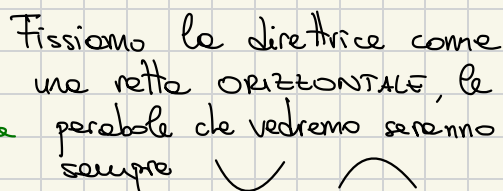 Fissiamo la direttrice come
una retta ORIZZONTALE, le
parabole che vedremo saranno
sempre